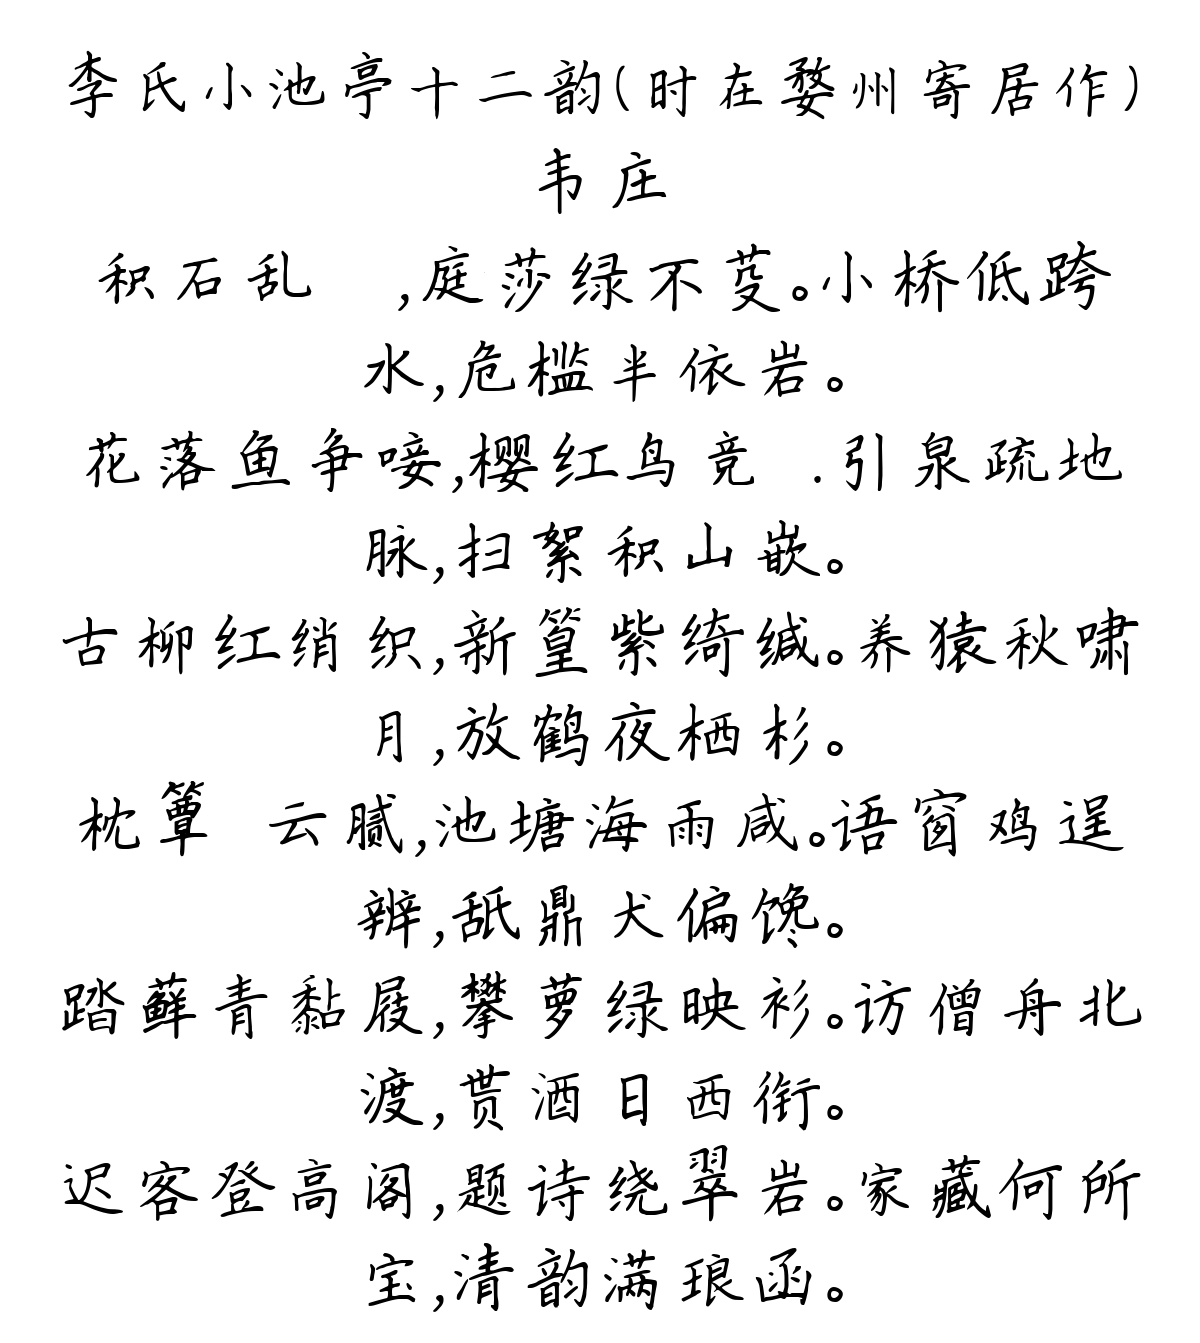 李氏小池亭十二韵(时在婺州寄居作)
韦庄
积石乱 ,庭莎绿不芟。小桥低跨
水,危槛半依岩。
花落鱼争唼,樱红鸟竞 .引泉疏地
脉,扫絮积山嵌。
古柳红绡织,新篁紫绮缄。养猿秋啸
月,放鹤夜栖杉。
枕簟 云腻,池塘海雨咸。语窗鸡逞
辨,舐鼎犬偏馋。
踏藓青黏屐,攀萝绿映衫。访僧舟北
渡,贳酒日西衔。
迟客登高阁,题诗绕翠岩。家藏何所
宝,清韵满琅函。